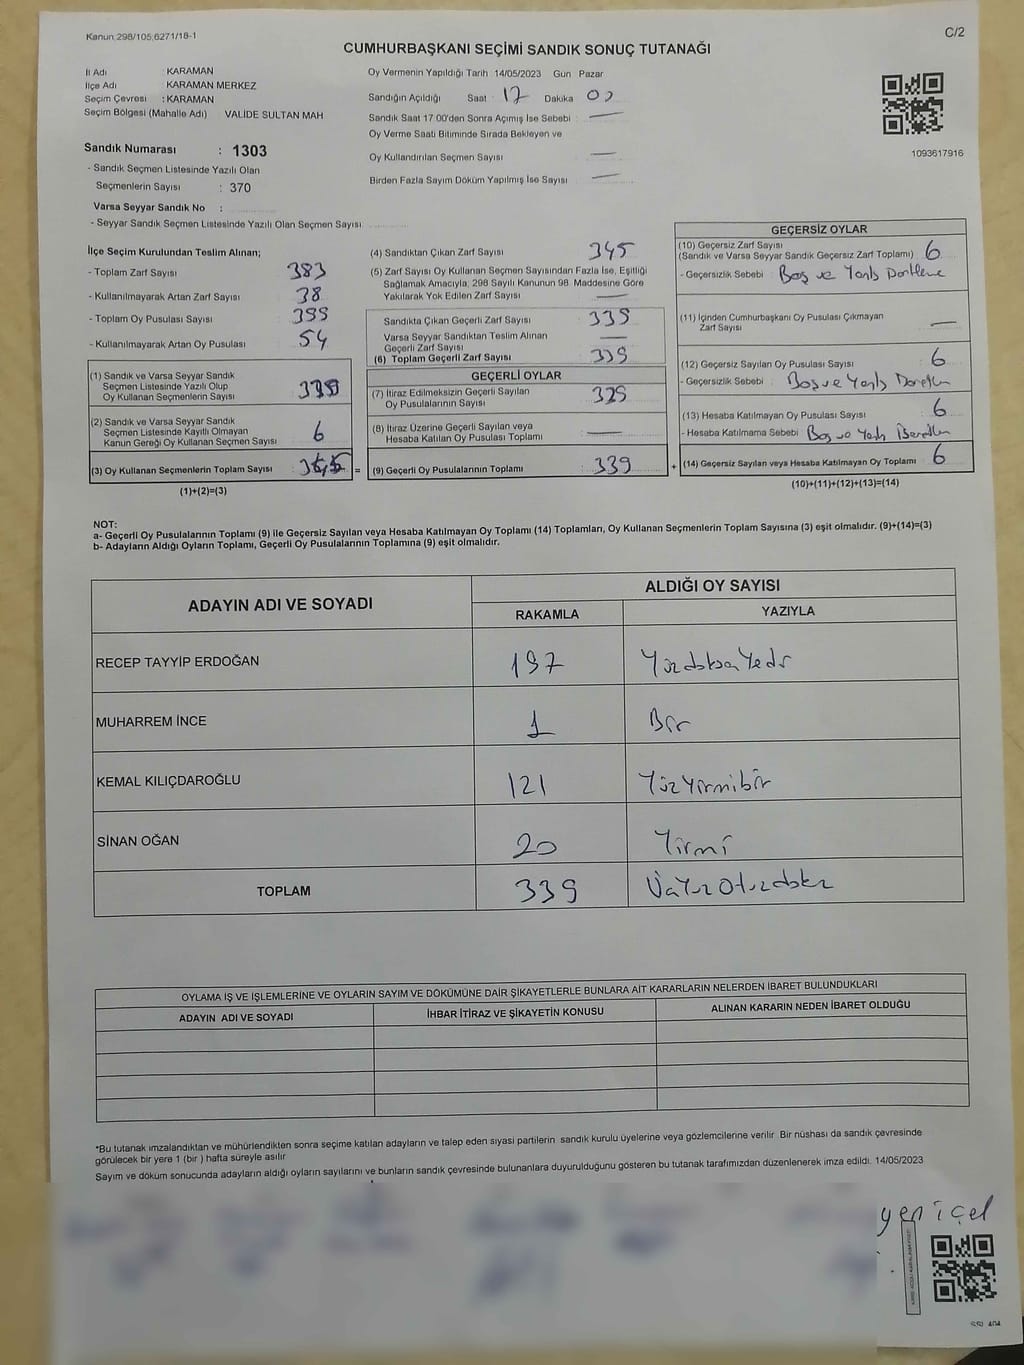 Kanun 298/105,6271/18-1
C/2
CUMHURBAŞKANI SEÇİMİ SANDIK SONUÇ TUTANAĞI
İl Adı : KARAMAN
İlçe Adı : KARAMAN MERKEZ
Seçim Çevresi : KARAMAN
Seçim Bölgesi (Mahalle Adı) VALİDE SULTAN MAH
Sandık Numarası : 1303
- Sandık Seçmen Listesinde Yazılı Olan
Seçmenlerin Sayısı : 370
Varsa Seyyar Sandık No :
- Seyyar Sandık Seçmen Listesinde Yazılı Olan Seçmen Sayısı
Oy Vermenin Yapıldığı Tarih 14/05/2023 Gün Pazar
Sandığın Açıldığı Saat 17 Dakika 00
Sandık Saat 17 00'den Sonra Açımış İse Sebebi :
Oy Verme Saati Bitiminde Sırada Bekleyen ve
Oy Kullandırılan Seçmen Sayısı
Birden Fazla Sayım Döküm Yapılmış İse Sayısı
1093617916
İlçe Seçim Kurulundan Teslim Alınan;
- Toplam Zarf Sayısı 383
- Kullanılmayarak Artan Zarf Sayısı 38
- Toplam Oy Pusulası Sayısı 399
- Kullanılmayarak Artan Oy Pusulası 54
(1) Sandık ve Varsa Seyyar Sandık
Seçmen Listesinde Yazılı Olup
Oy Kullanan Seçmenlerin Sayısı 339
(2) Sandık ve Varsa Seyyar Sandık
Seçmen Listesinde Kayıtlı Olmayan
Kanun Gereği Oy Kullanan Seçmen Sayısı 6
(3) Oy Kullanan Seçmenlerin Toplam Sayısı : 345 =
(1)+(2)=(3)
(4) Sandıktan Çıkan Zarf Sayısı 345
(5) Zarf Sayısı Oy Kullanan Seçmen Sayısından Fazla İse, Eşitliği
Sağlamak Amacıyla, 298 Sayılı Kanunun 98. Maddesine Göre
Yakılarak Yok Edilen Zarf Sayısı
Sandıkta Çıkan Geçerli Zarf Sayısı 339
Varsa Seyyar Sandıktan Teslim Alınan
Geçerli Zarf Sayısı
(6) Toplam Geçerli Zarf Sayısı 339
GEÇERLİ OYLAR
(7) İtiraz Edilmeksizin Geçerli Sayılan
Oy Pusulalarının Sayısı 339
(8) İtiraz Üzerine Geçerli Sayılan veya
Hesaba Katılan Oy Pusulası Toplamı
(9) Geçerli Oy Pusulalarının Toplamı 339 +
GEÇERSİZ OYLAR
(10) Geçersiz Zarf Sayısı
(Sandık ve Varsa Seyyar Sandık Geçersiz Zarf Toplamı) 6
- Geçersizlik Sebebi : Boş ve Yanlış
(11) İçinden Cumhurbaşkanı Oy Pusulası Çıkmayan
Zarf Sayısı
(12) Geçersiz Sayılan Oy Pusulası Sayısı 6
- Geçersizlik Sebebi : Boş ve Yanlış
(13) Hesaba Katılmayan Oy Pusulası Sayısı 6
- Hesaba Katılmama Sebebi Boş ve Yanlış
(14) Geçersiz Sayılan veya Hesaba Katılmayan Oy Toplamı 6
(10)+(11)+(12)+(13)=(14)
NOT:
a- Geçerli Oy Pusulalarının Toplamı (9) ile Geçersiz Sayılan veya Hesaba Katılmayan Oy Toplamı (14) Toplamları, Oy Kullanan Seçmenlerin Toplam Sayısına (3) eşit olmalıdır. (9)+(14)=(3)
b- Adayların Aldığı Oyların Toplamı, Geçerli Oy Pusulalarının Toplamına (9) eşit olmalıdır.
ADAYIN ADI VE SOYADI
ALDIĞI OY SAYISI
RAKAMLA YAZIYLA
RECEP TAYYİP ERDOĞAN 197 Yüzdoksanyedi
MUHARREM İNCE 1 Bir
KEMAL KILIÇDAROĞLU 121 Yüzyirmibir
SİNAN OĞAN 20 Yirmi
TOPLAM 339 Üçyüzotuzdokuz
OYLAMA İŞ VE İŞLEMLERİNE VE OYLARIN SAYIM VE DÖKÜMÜNE DAİR ŞİKAYETLERLE BUNLARA AİT KARARLARIN NELERDEN İBARET BULUNDUKLARI
ADAYIN ADI VE SOYADI İHBAR İTİRAZ VE ŞİKAYETİN KONUSU ALINAN KARARIN NEDEN İBARET OLDUĞU
*Bu tutanak imzalandıktan ve mühürlendikten sonra seçime katılan adayların ve talep eden siyasi partilerin sandık kurulu üyelerine veya gözlemcilerine verilir. Bir nüshası da sandık çevresinde
görülecek bir yere 1 (bir ) hafta süreyle asılır
Sayım ve döküm sonucunda adayların aldığı oyların sayılarını ve bunların sandık çevresinde bulunanlara duyurulduğunu gösteren bu tutanak tarafımızdan düzenlenerek imza edildi. 14/05/2023
yeniçel